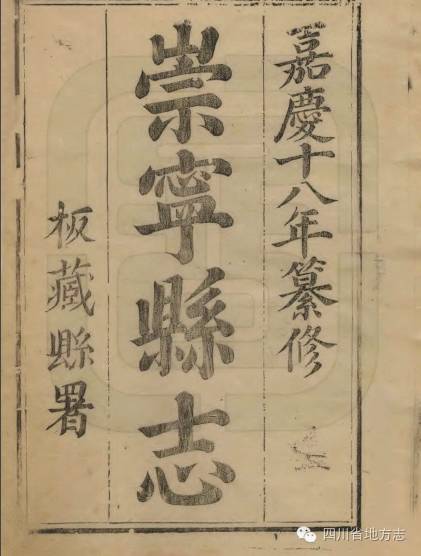 嘉慶十八年纂修
崇寧縣志
板藏縣署
四川省地方志